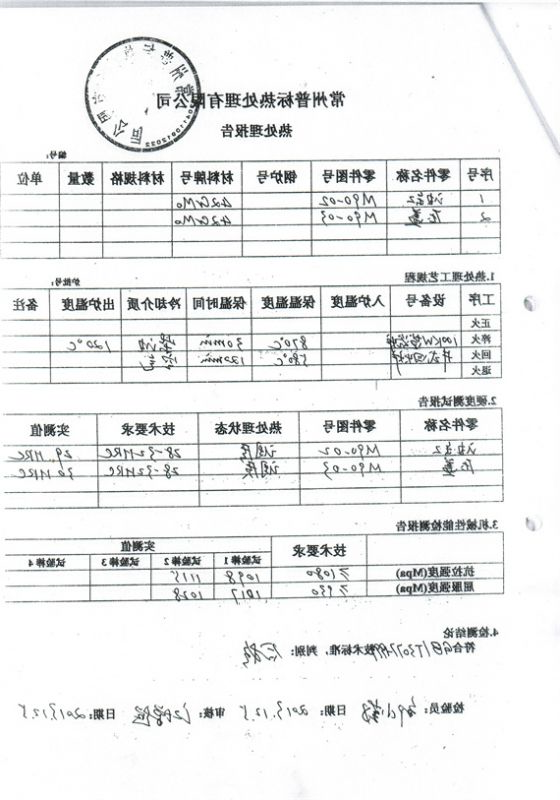 常州普标热处理有限公司
热处理报告
编号：
序号 零件名称 零件图号 钢炉号 材料牌号 材料规格 数量 单位
1 M90-02 42CrMo
2 M90-03 42CrMo
1.热处理工艺规程 炉批号：
工序 设备号 入炉温度 保温温度 保温时间 冷却介质 出炉温度 备注
正火
淬火 100KW 870℃ 30min 120℃
回火 井式回火炉 580℃ 120min
退火
2.硬度测试报告
零件名称 零件图号 热处理状态 技术要求 实测值
M90-02 调质 28-32HRC 29 HRC
M90-03 调质 28-32HRC 30 HRC
3.机械性能检测报告
技术要求 实测值
试验棒1 试验棒2 试验棒3 试验棒4
抗拉强度(Mpa) ≥1080 1098 1115
屈服强度(Mpa) ≥930 1017 1028
4.检测结论
符合GB/T3077 技术标准，判别：合格
检验员： 日期：2013.12.5 审核： 日期：2013.12.5